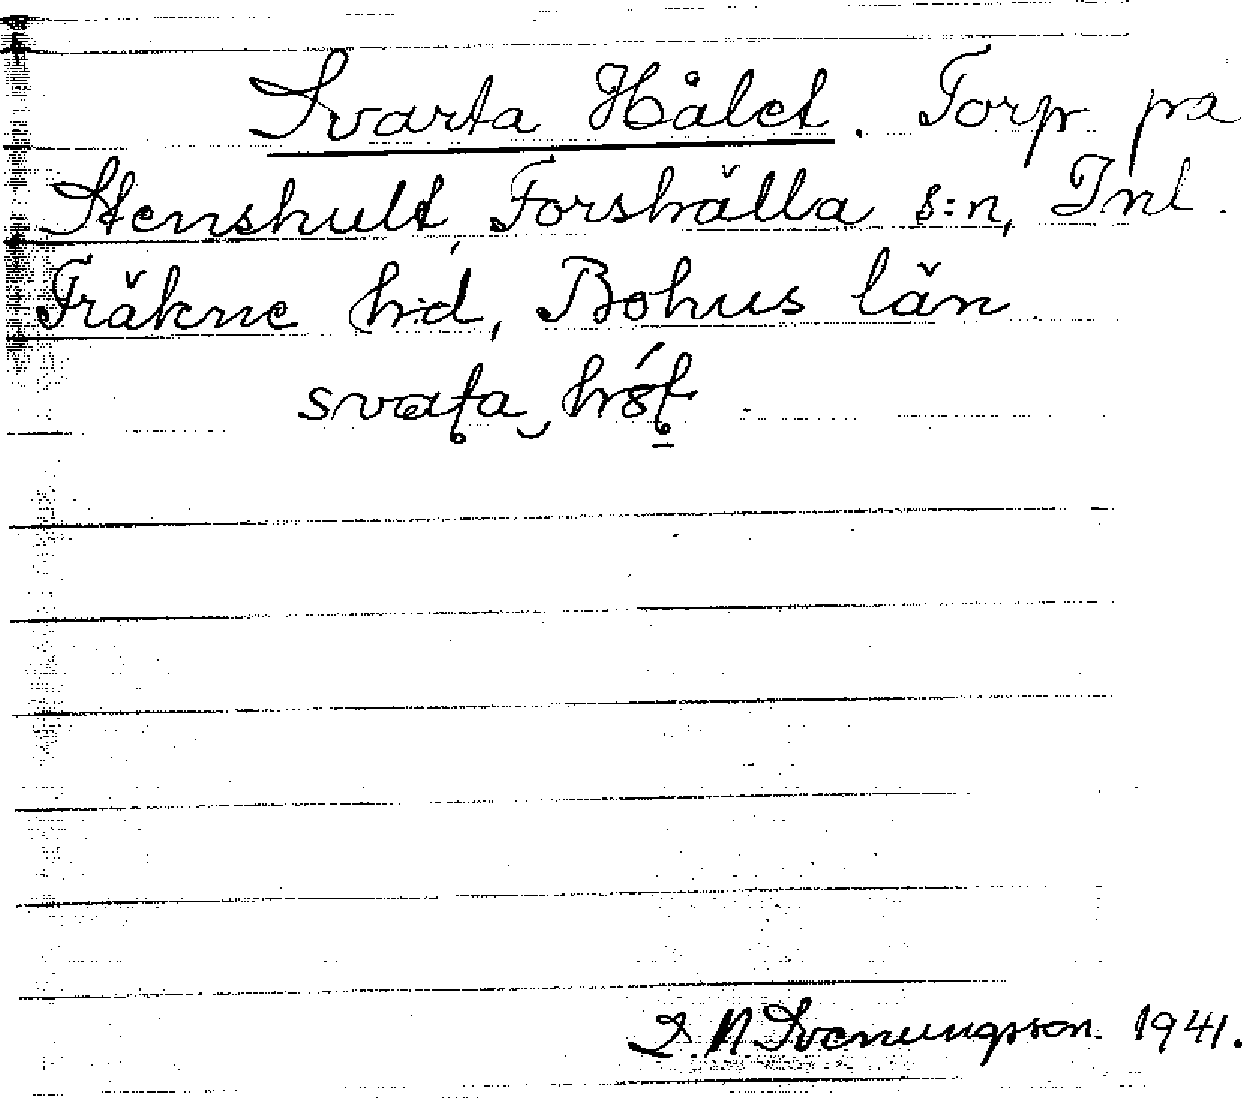 Svarta Hålet. Torp på
Stenshult, Forshälla s:n, Inl.
Fräkne hd, Bohus län
N Svenungsson 1941.